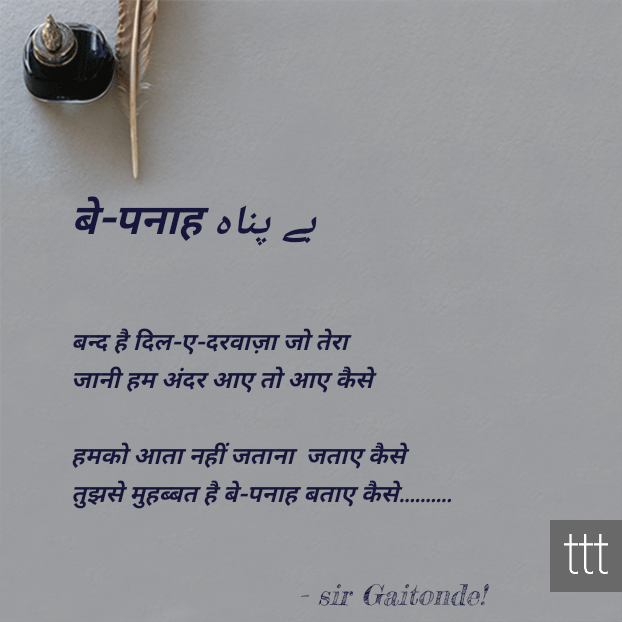 बे-पनाह بے پناہ
बन्द है दिल-ए-दरवाज़ा जो तेरा
जानी हम अंदर आए तो आए कैसे
हमको आता नहीं जताना जताए कैसे
तुझसे मुहब्बत है बे-पनाह बताए कैसे..........
ttt
- sir Gaitonde!